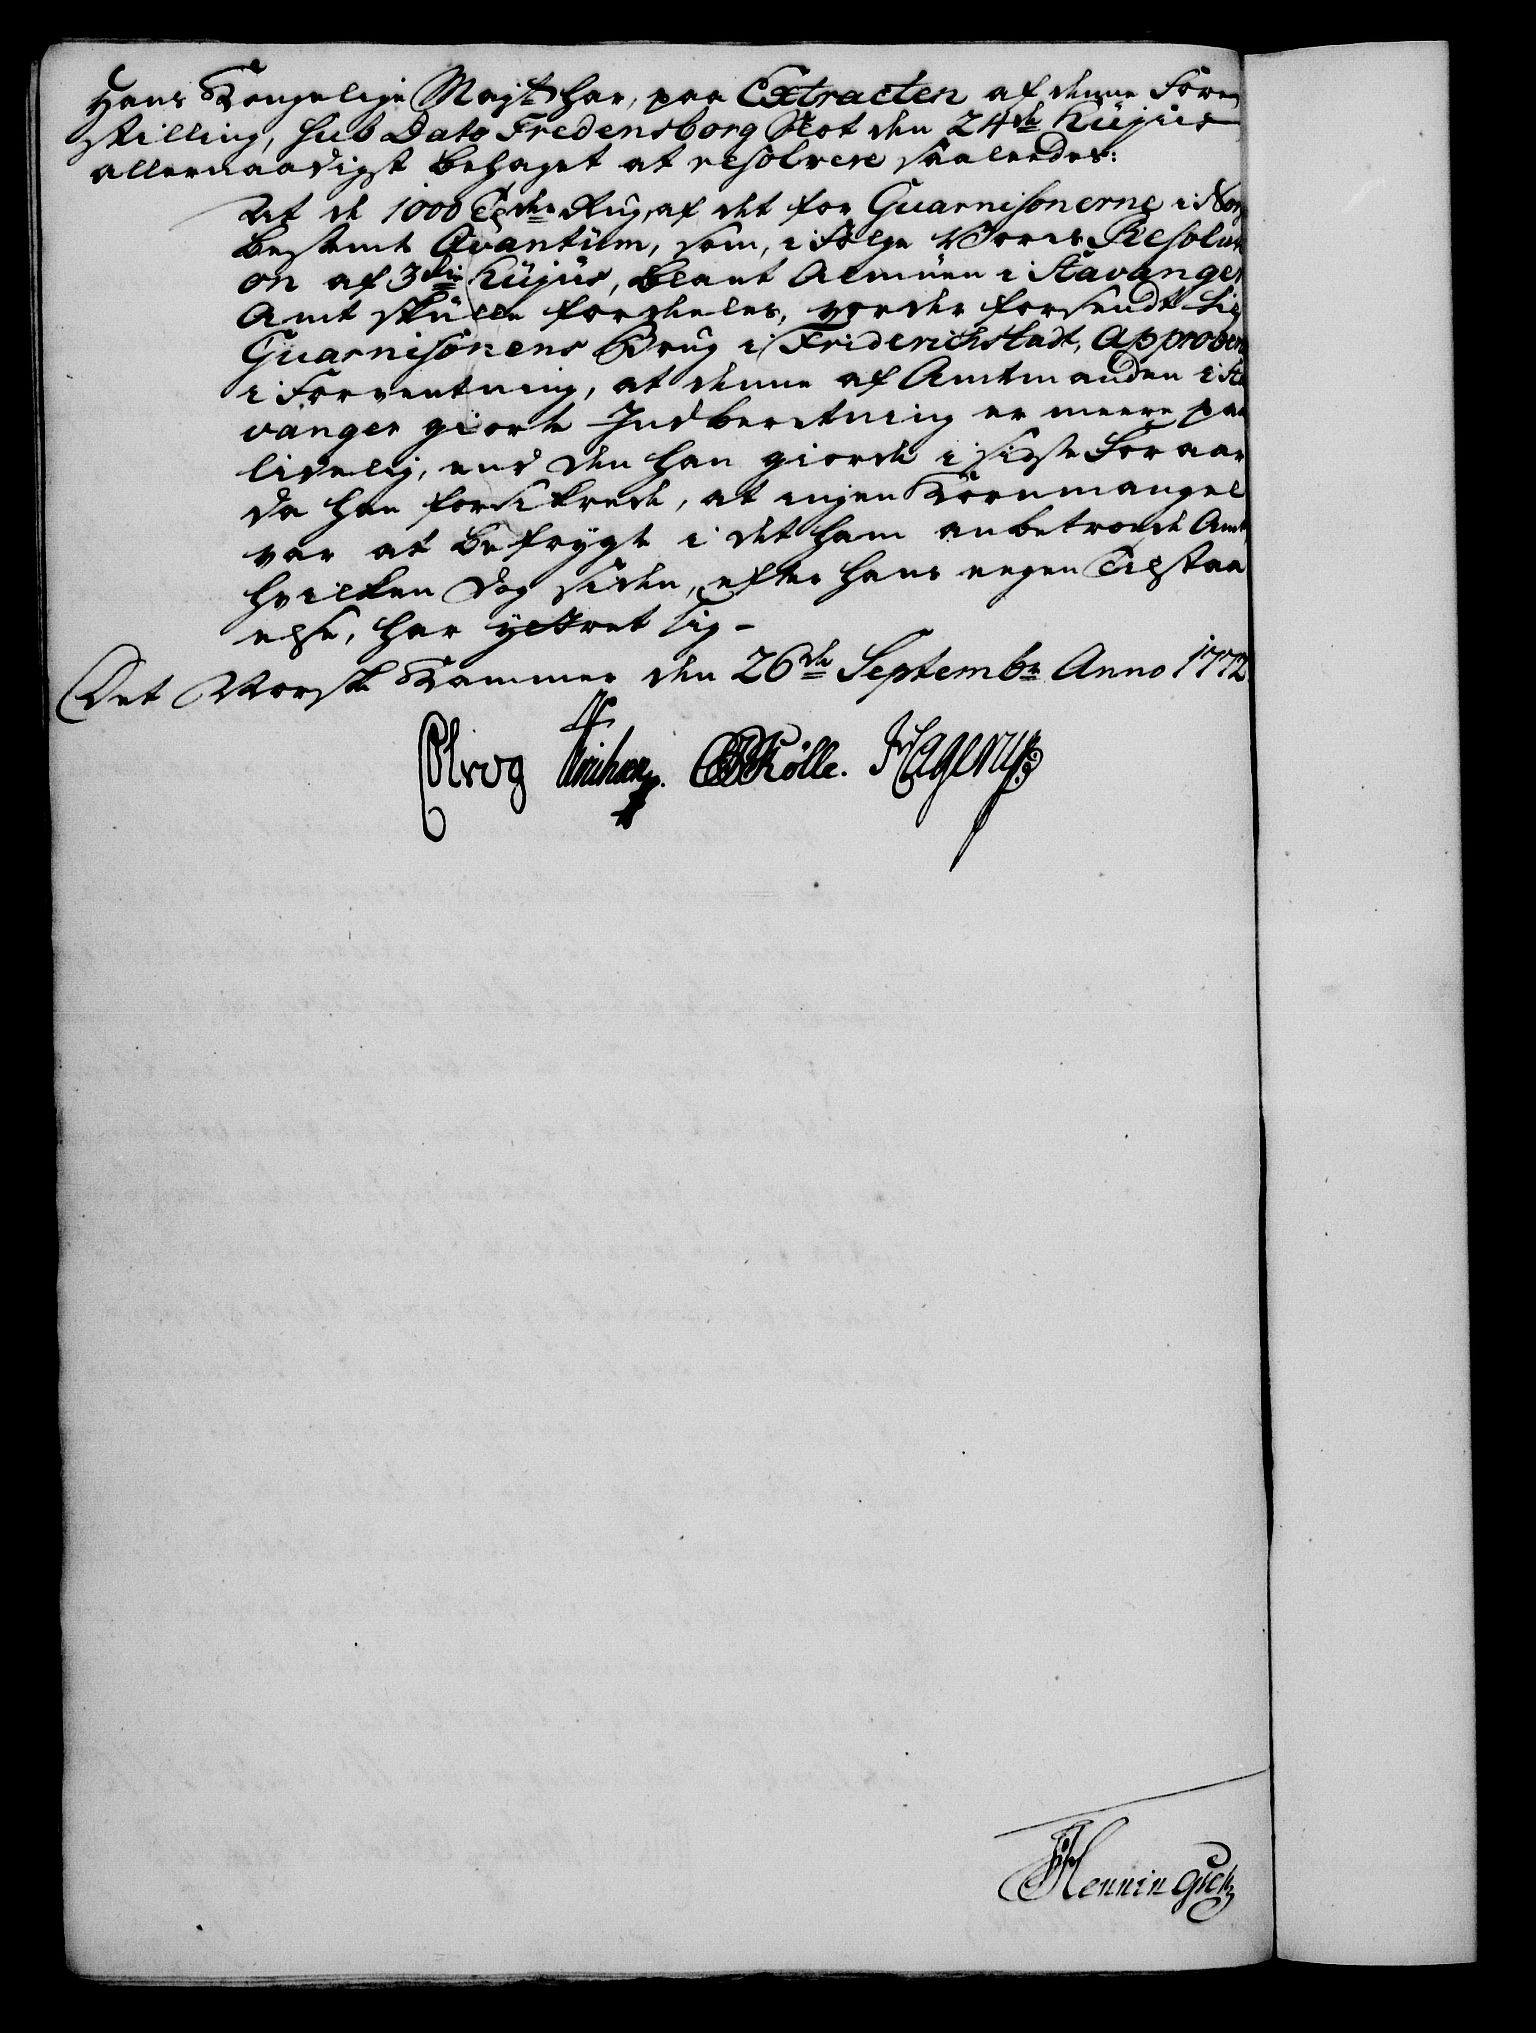 Hans Kongelige Majts har, paa Extracten af denne Fore
stilling, sub Dato Fredensborg Slot den 24de hujus
allernaadigst behaget at resolvere saaledes:
At de 1000 Tdr Rug, af det for Guarnisonerne i Nor
bestemt Qvantum, som, i Følge Vores Resoluti
on af 3die hujus, blant Almuen i Stavanger
Amt skulle fordeeles, vorder forsendt til
Guarnisonens Brug i Friderichstadt, approbere
i Forventning, at denne af Amtmanden i Sta
vanger giorte Indberetning er meere paa
lidelig, end den han giorde i sidste Foraar
da han forsikrede, at ingen Kornmangel
var at befrygte i det ham anbetroede Amt,
hvilken dog siden, efter hans eegen Tilstaa
else, har yttret sig -
Det Norske Kammer den 26de Septembr Anno 1772.
Kølle. Hagerup
Hennings